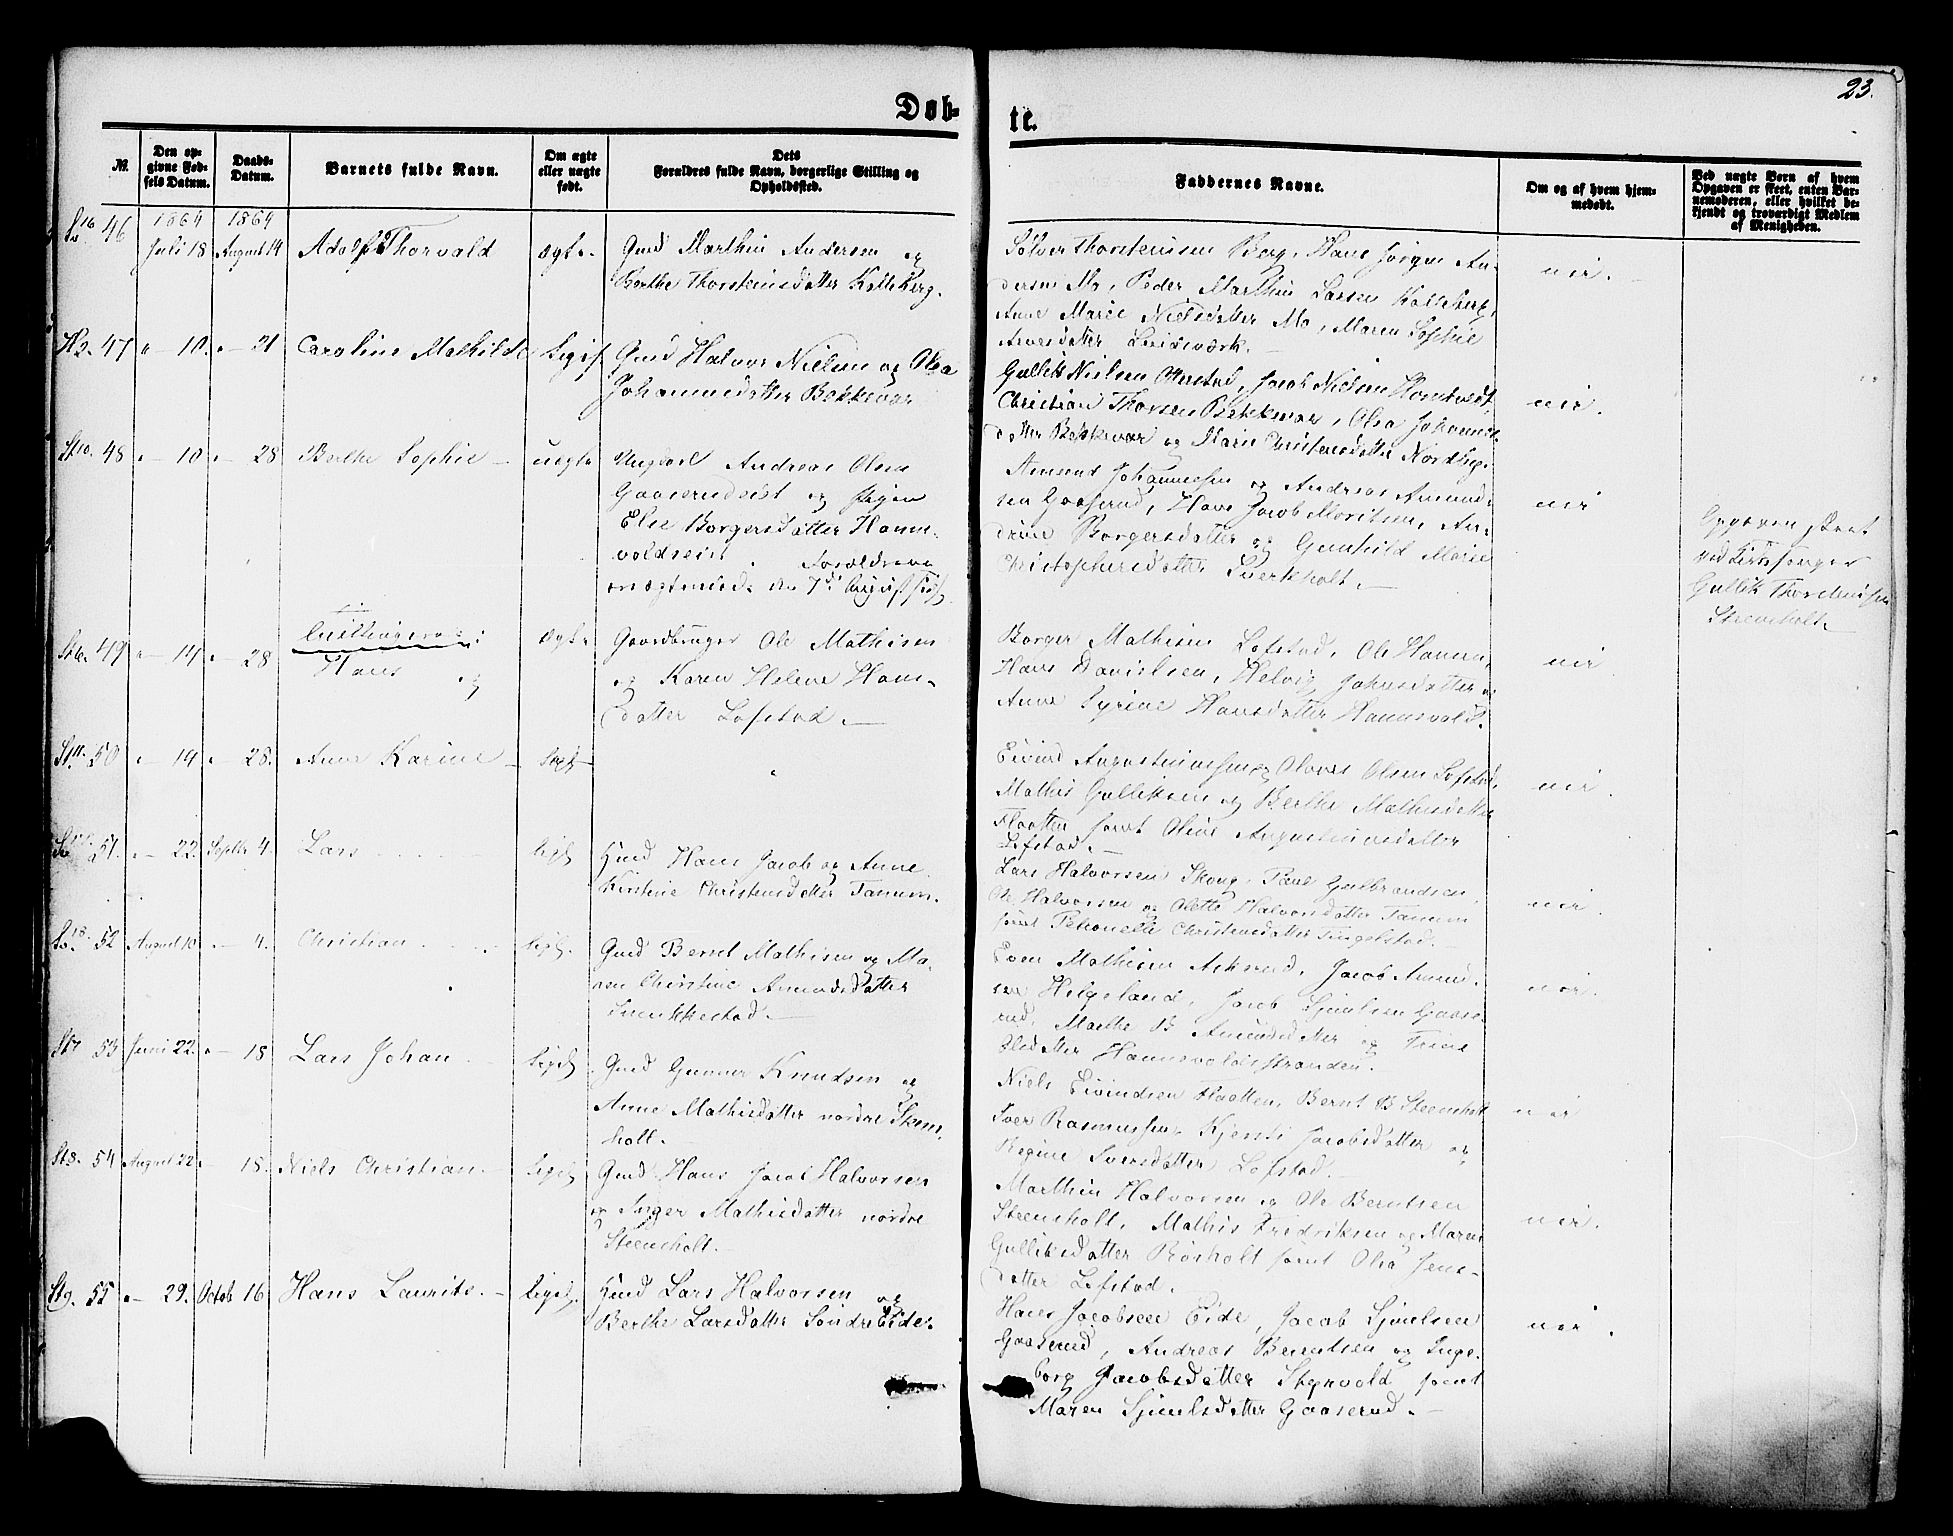 23.
Døb-
te.
№.
Den op-
givne Fød-
sels Datum.
Daabs-
Datum.
Barnets fulde Navn.
Om ægte
eller uægte
født.
Dets
Forældres fulde Navn, borgerlige Stilling og
Opholdssted.
Faddernes Navne.
Om og af hvem hjem-
medøbt.
Ved uægte Børn af hvem
Opgaven er skeet, enten Bar-
nemoderen, eller hvilket be-
kjendt og troværdigt Medlem
af Menigheden.
46
1864
Juli 18
1864
August 14
Adolf Thorvald
ægte.
Gmd Marthin Andersen og
Berthe Thorsteinsdatter Kolleberg.
Sølver Thorsteinsen Berg, Hans Jørgen An-
dersen Mo, Peder Marthin Larsen Kolleberg,
Anne Marie Nielsdatter Mo, Maren Sophie
Arvesdatter
nei.
47 " – 10. " – 21
Caroline Mathilde
liges
Gmd Halvor Nielsen og Olea
Johannesdatter Bekkevar
Gullik Nielsen Ollestad, Jacob Nielsen Homtvedt,
Christian Thorsen Bekkevar, Olea Johannes-
datter Bekkevar og Marie
nei.
48 " – 10 " – 28
Berthe Sophie –
uægte
Ungkarl Andreas Olsen
Gaaserudeiet og Pigen
Else Borgersdatter Hanne-
voldseiet. Forældrene
den 7de August
Amund Johannesen og Andreas Amund-
sen Gaaserud, Hans Jacob Moritsen, An-
drine Borgersdatter og Gunhild Marie
Christophersdatter Sverkholt. –
nei
Opgaven skeet
ved Kirkesanger
Gullik Thorsteinsen
Steensholt.
49 " – 14 " – 28
Tvillingerne:
Hans og
ægte
Gaardbruger Ole Mathisen
og Karen Helene Hans-
datter Lofstad. –
Borger Mathisen Lofstad, Ole Hansen,
Hans Danielsen, Helvig Johnsdatter og
Anne Syrine Hansdatter Hannevold.
nei
50 " – 14 " – 28.
Anne Karine –
ligt –
Eivind Augustinussen og Olaves Olsen Lofstad,
Mathis Gulliksen og Berthe Mathisdatter
Flaatten samt Oline Augustinusdatter
Lofstad. –
nei.
51. " – 22. Septbr 4.
Lars
ligt
Hmd Hans Jacob og Anne
Kirstine Christensdatter Tanum.
Lars Halvorsen Skoug, Paul Gulbrandsen,
Ole Halvorsen og Olette Halvorsdatter Tanum
samt Petronelle Christensdatter Tingelstad.
nei.
52 August 10 " – 4.
Christian
ligt.
Gmd Bernt Mathisen og Ma-
ren Christine Amundsdatter
Snekkestad. –
Even Mathisen Askerud, Jacob Amund-
sen Helgeland, Jacob Sjulsen Gaase-
rud, Marthe B Amundsdatter og Trine
Olsdatter Hannevoldsstranden.
nei.
53 Juni 22. " – 18
Lars Johan
ligt
Gmd Gunner Knudsen og
Anne Mathisdatter nordre Steens-
holt.
Niels Eivindsen Flaatten, Bernt B Steensholt
Iver Rasmussen, Kjersti Jacobsdatter og
Regine Iversdatter Lofstad.
nei
54 August 22 " – 18.
Niels Christian –
ligt
Gmd Hans Jacob Halvorsen
og Inger Mathisdatter nordre
Steensholt.
Marthin Halvorsen og Ole Berntsen
Steensholt, Mathis Fredriksen og Maren
Gulliksdatter Rørholt samt Olea Jens-
datter Lofstad. –
nei.
55 " – 29. Octob 16
Hans Laurits. –
ligt.
Hmd Lars Halvorsen og
Berthe Larsdatter Søndre Eide.
Hans Jacobsen Eide, Jacob Sjulsen
Gaaserud, Andreas Berntsen og Inge-
borg Jacobsdatter Stenvold samt
Maren Sjulsdatter Gaaserud. –
nei.